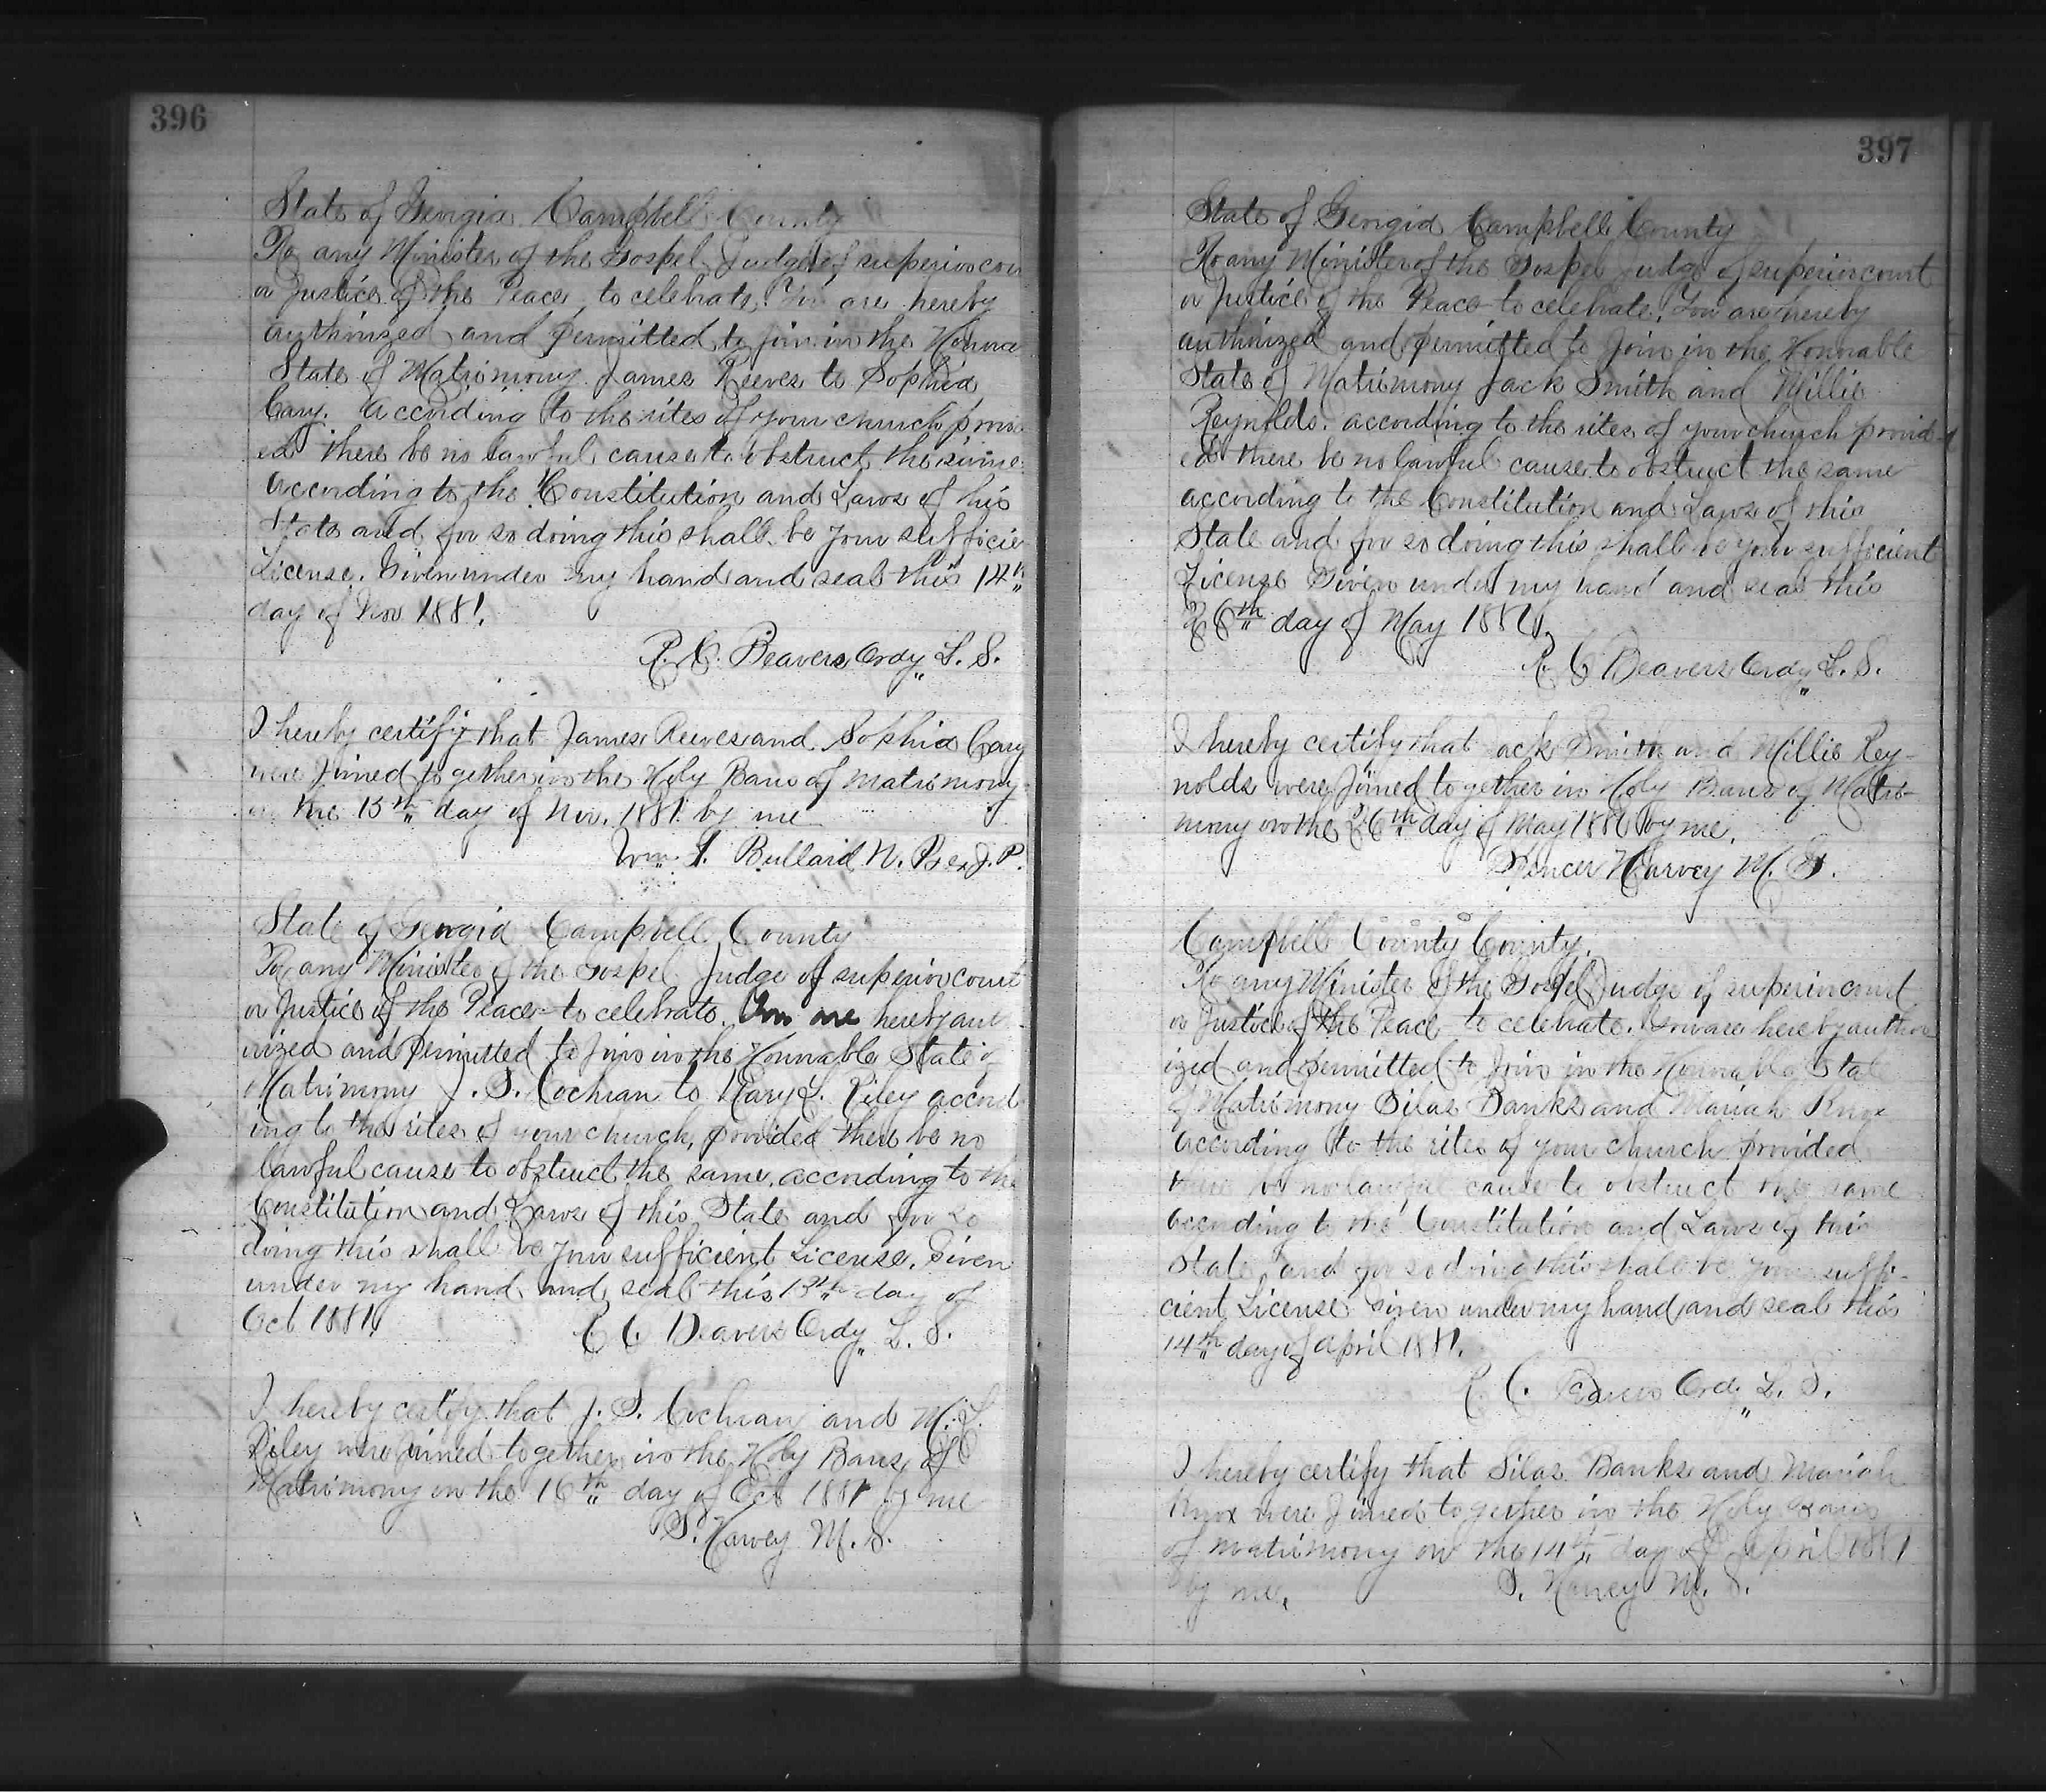 396
State of Georgia Campbell County
To any Minister of the Gospel Judge of superior cou
or Justice of the Peace to celebrate. You are hereby
authorized and permitted to join in the Honora
State of Matrimony James Reeves to Sophia
Cary. According to the rites of your church provi
ed there be no lawful cause to obstruct the same
according to the Constitution and Laws of this
State and for so doing this shall be your sufficie
License. Given under my hand and seal this 14th
day of Nov 1881.
R. C. Beavers Ordy L. S.
I hereby certify that James Reeves and Sophia Cary
were Joined together in the Holy Bans of matrimony
on the 15th day of Nov. 1881 by me
Wm. J. Bullard N. P. & ex J. P.
State of Georgia Campbell County
To any Minister of the Gospel Judge of superior court
or Justice of the Peace to celebrate. You are hereby auth
orized and permitted to Join in the Honorable State of
Matrimony J. S. Cochran to Mary L. Riley accord
ing to the rites of your church, provided there be no
lawful cause to obstruct the same, according to the
Constitution and Laws of this State and for so
doing this shall be your sufficient License. Given
under my hand and seal this 15th day of
Oct 1881.
R C. Beavers Ordy L. S.
I hereby certify that J. S. Cochran and M. L.
Riley were Joined together in the Holy Bans of
Matrimony on the 16th day of Oct 1881 by me
S. Harvey M. G.
397
State of Georgia Campbell County
To any Minister of the Gospel Judge of superior court
or Justice of the Peace to celebrate. You are hereby
authorized and permitted to Join in the Honorable
State of Matrimony Jack Smith and Millie
Reynolds. according to the rites of your church provid
ed there be no lawful cause to obstruct the same
according to the Constitution and Laws of this
State and for so doing this shall be your sufficient
License Given under my hand and seal this
26th day of May 1881.
R. C Beavers Ordy L. S.
I hereby certify that Jack Smith and Millie Rey-
nolds were Joined together in Holy Bans of Matri-
mony on the 26th day of May 1881 by me.
Spencer Harvey M. G.
Campbell County County.
To any Minister of the Gospel Judge of superior court
or Justice of the Peace to celebrate. You are hereby author
ized and permitted to Join in the Honorable State
of Matrimony Silas Banks and Mariah Knox
according to the rites of your church provided
there be no lawful cause to obstruct the same
according to the Constitution and Laws of this
State and for so doing this shall be your suffi-
cient License Given under my hand and seal this
14th day of april 1881.
R C. Beavers Ordy L. S.
I hereby certify that Silas Banks and Mariah
Knox were Joined together in the Holy Bans
of matrimony on the 14th day of April 1881
by me. S. Harvey M. G.